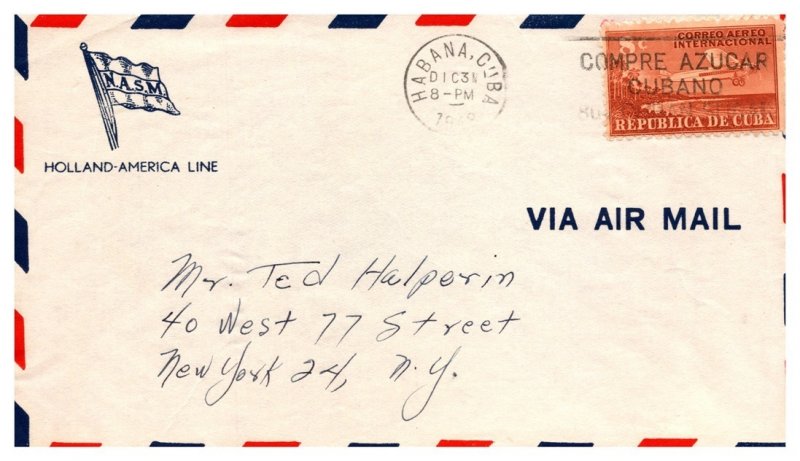 N.A.S.M.
HOLLAND-AMERICA LINE
HABANA, CUBA
DIC 31
8-PM
8¢
CORREO AEREO
INTERNACIONAL
COMPRE AZUCAR
CUBANO
REPUBLICA DE CUBA
VIA AIR MAIL
Mr. Ted Halperin
40 West 77 Street
New York 24, N.Y.